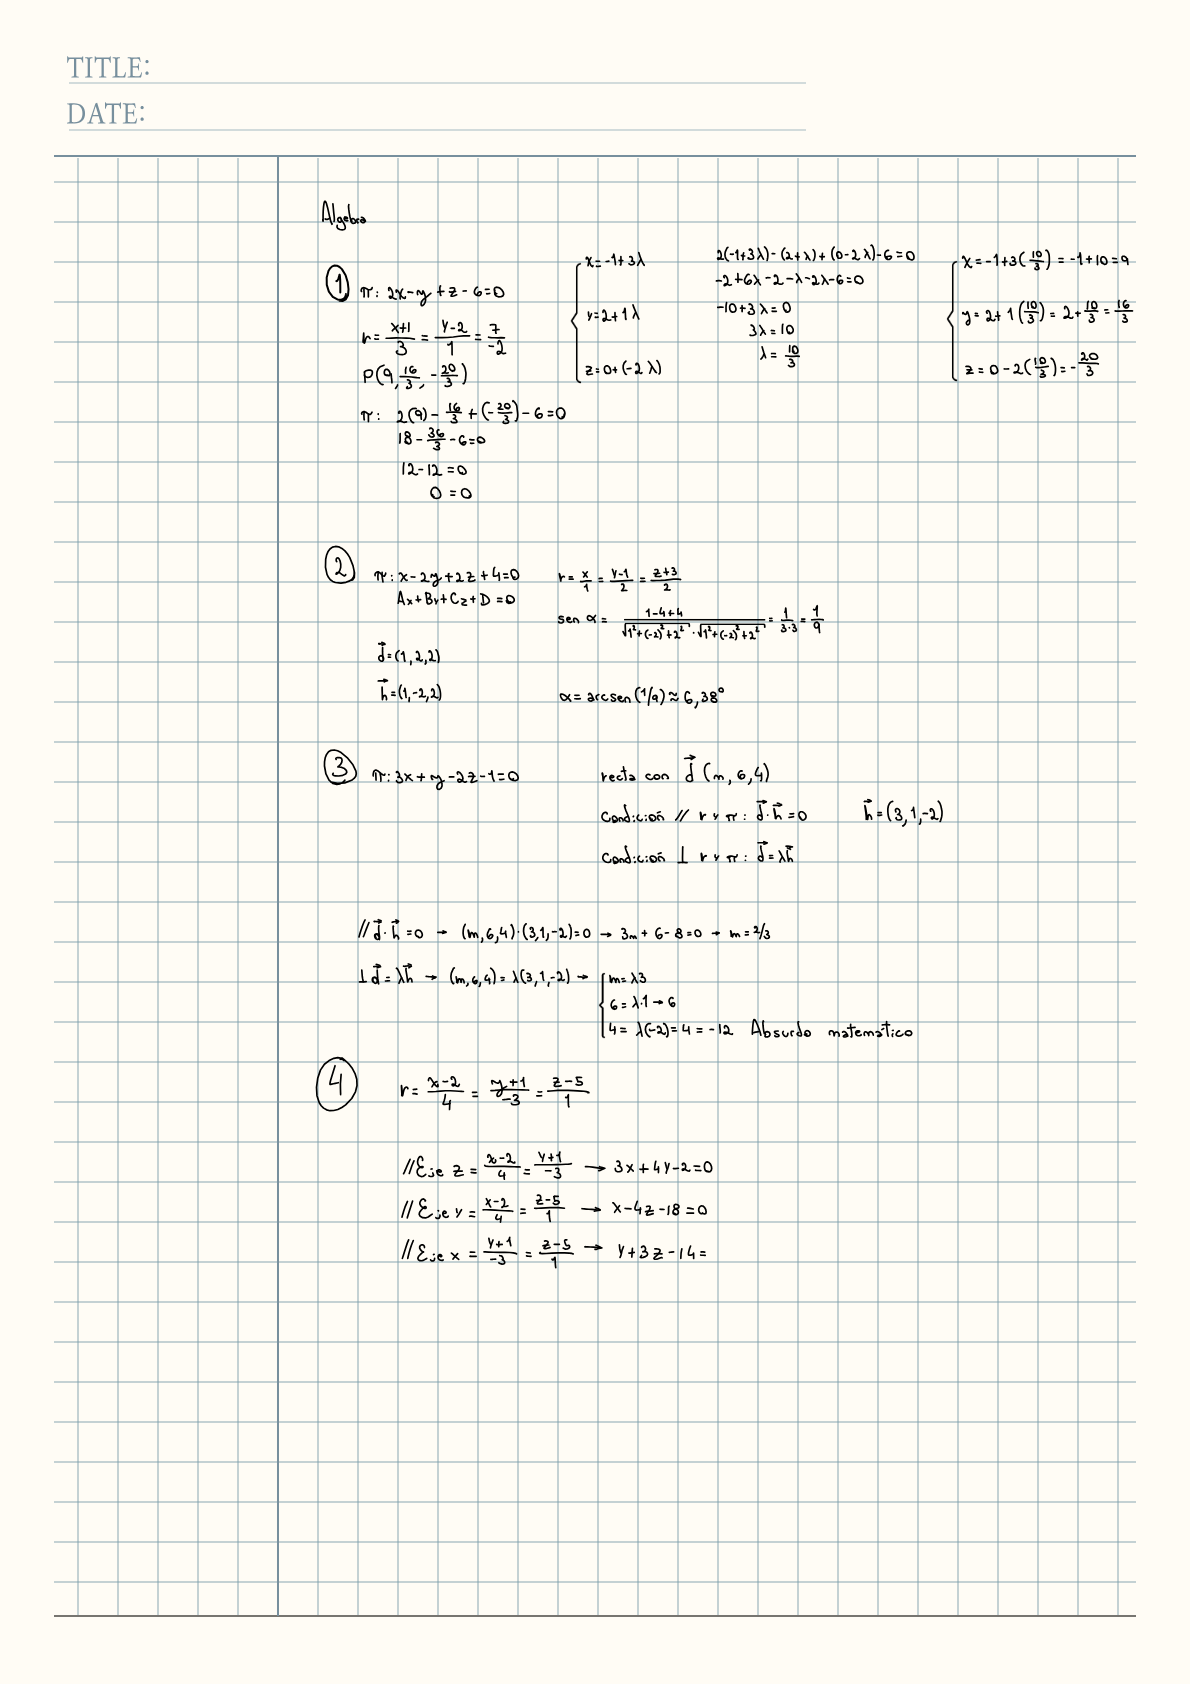 TITLE:
DATE:
Algebra
① π: 2x-y+z-6=0
r= x+1/3 = y-2/1 = 7/-2
P(9, 16/3, -20/3)
π: 2(9) - 16/3 + (-20/3) - 6=0
18 - 36/3 - 6=0
12-12=0
0=0
x=-1+3λ
y=2+1λ
z=0+(-2λ)
2(-1+3λ)-(2+λ)+(0-2λ)-6=0
-2+6λ-2-λ-2λ-6=0
-10+3λ=0
3λ=10
λ= 10/3
x=-1+3(10/3) = -1+10=9
y=2+1(10/3) = 2+10/3 = 16/3
z=0-2(10/3)=-20/3
② π: x-2y+2z+4=0
Ax+By+Cz+D=0
d⃗=(1,2,2)
n⃗=(1,-2,2)
r= x/1 = y-1/2 = z+3/2
sen α= 1-4+4/√1²+(-2)²+2² · √1²+(-2)²+2² = 1/3·3 = 1/9
α= arcsen(1/9)≈6,38°
③ π: 3x+y-2z-1=0
recta con d⃗ (m,6,4)
Condición // r y π: d⃗·n⃗=0 n⃗=(3,1,-2)
Condición ⊥ r y π: d⃗=λn⃗
// d⃗·n⃗=0 → (m,6,4)·(3,1,-2)=0 → 3m+6-8=0 → m=2/3
⊥ d⃗=λn⃗ → (m,6,4)=λ(3,1,-2) →
m=λ3
6=λ·1→6
4=λ(-2)=4=-12 Absurdo matematico
④ r= x-2/4 = y+1/-3 = z-5/1
//Eje z = x-2/4 = y+1/-3 → 3x+4y-2=0
//Eje y = x-2/4 = z-5/1 → x-4z-18=0
//Eje x = y+1/-3 = z-5/1 → y+3z-14=